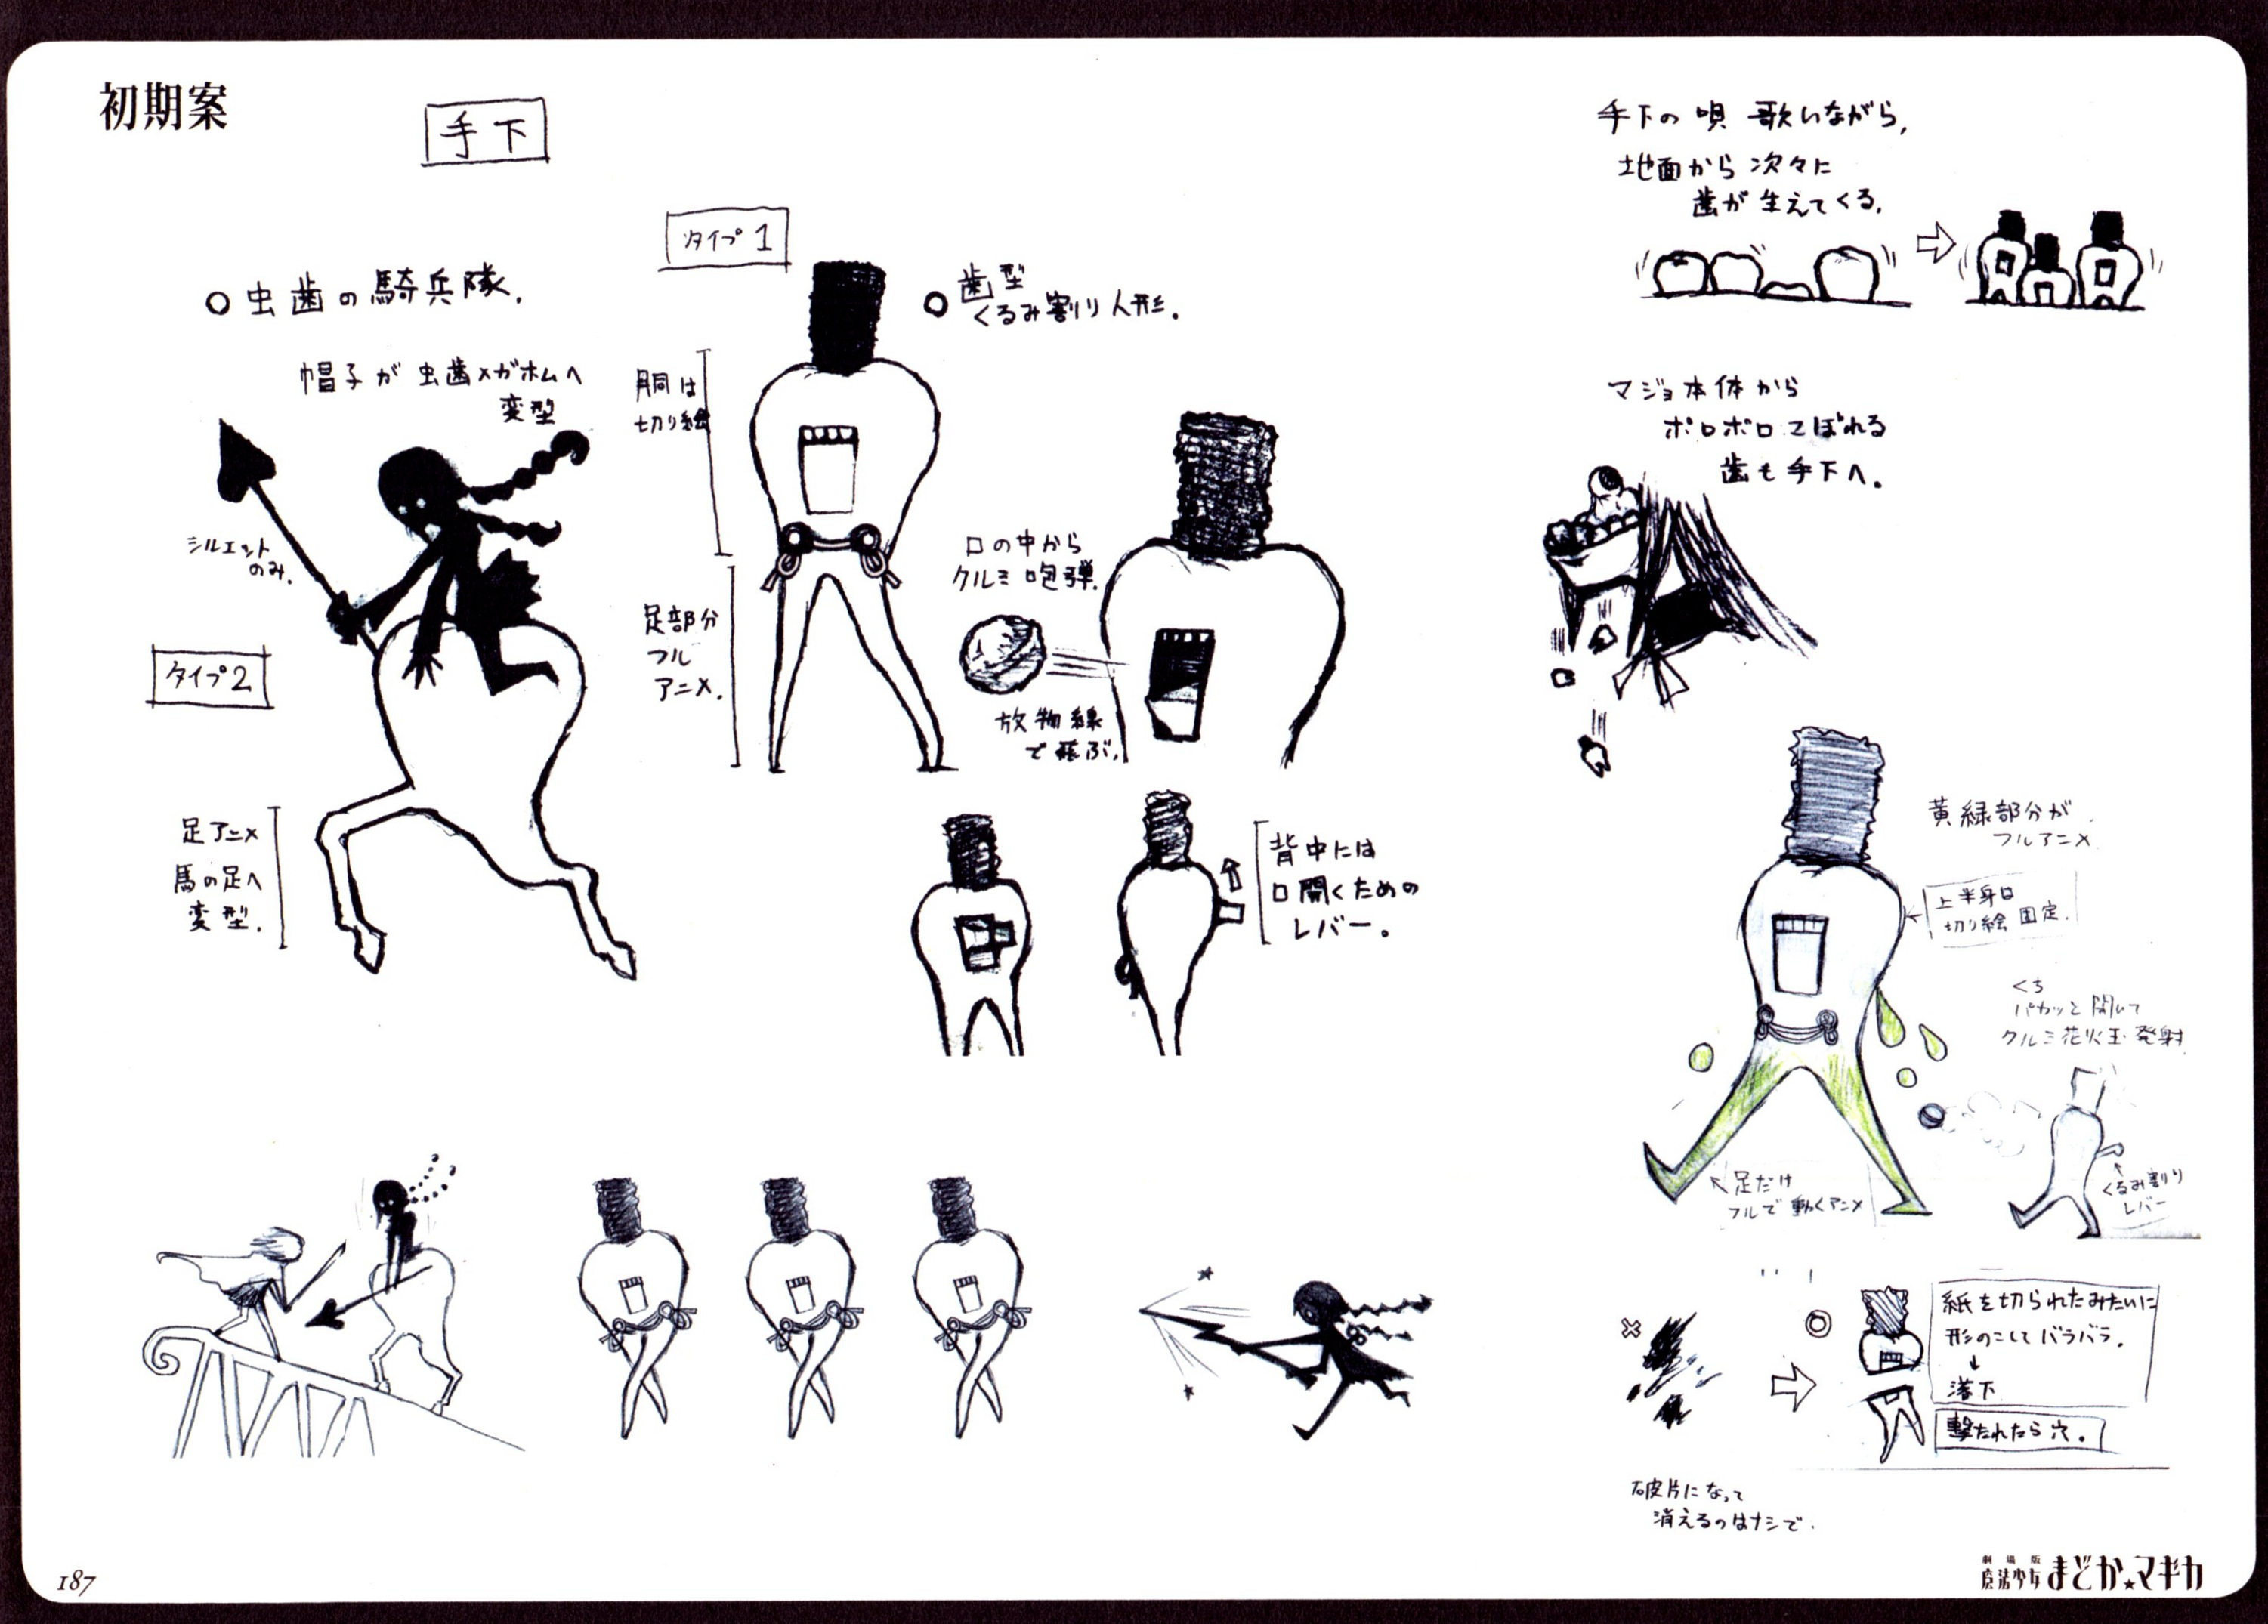 初期案
手下
タイプ1
虫歯の騎兵隊.
帽子が虫歯×ガホムへ
変型
シルエット
のみ.
タイプ2
足アニメ
馬の足へ
変型.
歯型
くるみ割り人形.
胴は
切り絵
足部分
フル
アニメ.
口の中から
クルミ砲弾.
放物線
で飛ぶ.
背中には
口開くための
レバー。
手下の唄 歌いながら,
地面から次々に
歯が生えてくる.
マジョ本体から
ボロボロこぼれる
歯も手下へ。
黄緑部分が
フルアニメ
上半身は
切り絵固定.
くち
パカッと開いて
クルミ花火玉発射
くるみ割り
レバー
足だけ
フルで動くアニメ
紙を切られたみたいに
形のこしてバラバラ.
↓
落下
撃たれたら穴。
破片になって
消えるのはナシで.
187
劇場版
魔法少女まどか★マギカ